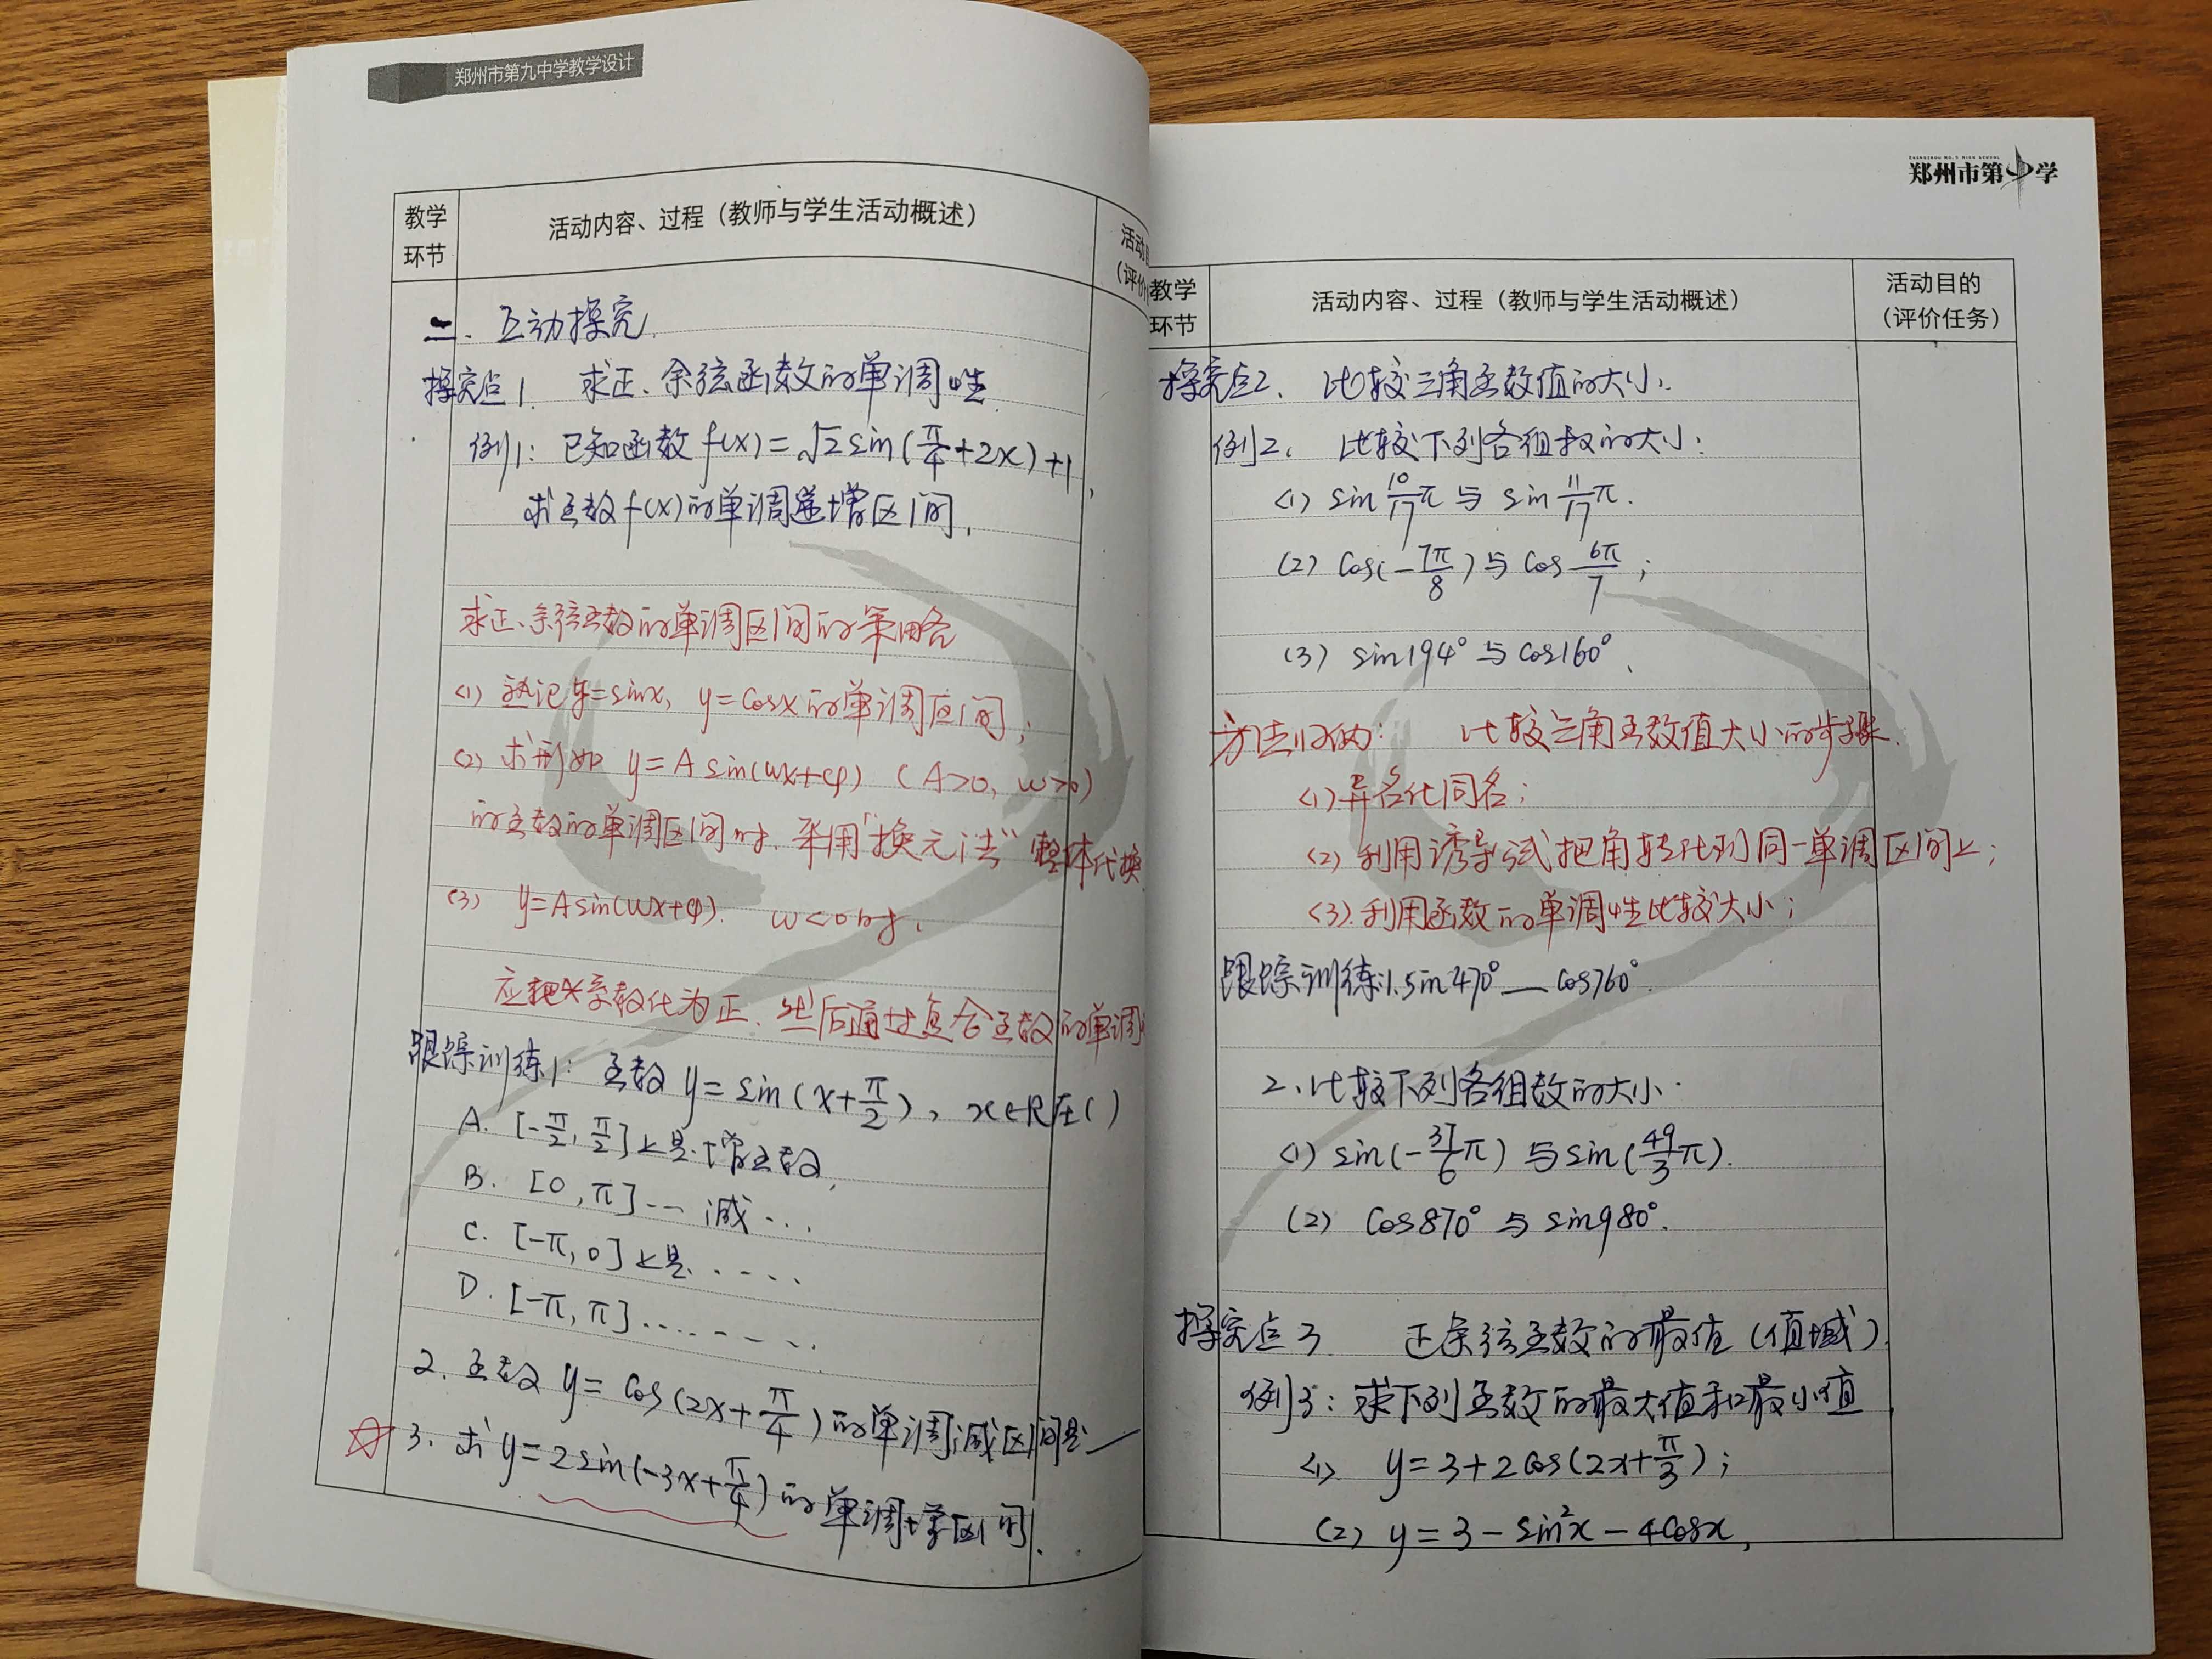 郑州市第九中学教学设计
教学
环节
活动内容、过程（教师与学生活动概述）
活动
（评价
二、互动探究.
探究点1. 求正、余弦函数的单调性
例1: 已知函数 f(x)=√2sin(π/4+2x)+1,
求函数f(x)的单调递增区间.
求正、余弦函数的单调区间的策略
(1) 熟记y=sinx, y=cosx的单调区间;
(2) 求形如 y=Asin(ωx+φ) (A>0, ω>0)
的函数的单调区间时.采用"换元法"整体代换
(3) y=Asin(ωx+φ). ω<0时,
应把x系数化为正.然后通过复合函数的单调
跟踪训练1: 函数 y=sin(x+π/2), x∈R在( )
A. [-π/2, π/2]上是增函数.
B. [0, π]... 减...
C. [-π, 0]上是.....
D. [-π, π]........
2. 函数 y=cos(2x+π/4)的单调减区间是—
☆3. 求y=2sin(-3x+π/4)的单调增区间.
ZHENGZHOU NO.9 HIGH SCHOOL
郑州市第九中学
教学
环节
活动内容、过程（教师与学生活动概述）
活动目的
（评价任务）
探究点2、比较三角函数值的大小.
例2、比较下列各组数的大小:
(1) sin 10/17π 与 sin 11/17π.
(2) cos(-7π/8)与cos 6π/7;
(3) sin194°与cos160°.
方法归纳: 比较三角函数值大小的步骤.
(1)异名化同名;
(2) 利用诱导公式把角转化到同一单调区间上;
(3).利用函数的单调性比较大小;
跟踪训练:1.sin470°__cos760°.
2、比较下列各组数的大小.
(1) sin(-37/6π)与sin(49/3π).
(2) cos870°与sin980°.
探究点3. 正余弦函数的最值(值域)
例3: 求下列函数的最大值和最小值
(1) y=3+2cos(2x+π/3);
(2) y=3-sin²x-4cosx,